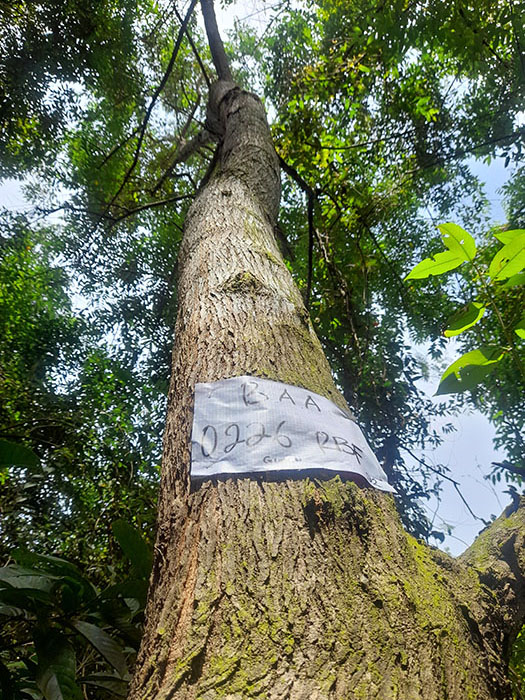 BAA
0226 RBF